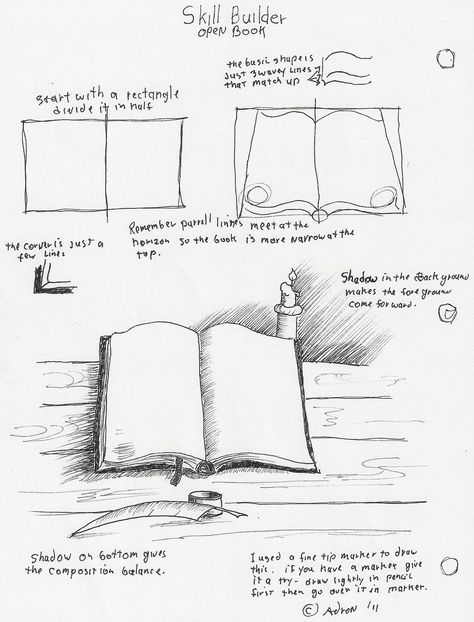 Skill Builder
OPEN BOOK
the basic shape is
Just 3 wavey Lines
that match up
Start with a rectangle
divide it in half
Remember parrell linnes meet at the
horizon so the book is more narrow at the
top.
the corver is Just a
few Lines
Shadow in the Back ground
makes the fore ground
come forward.
Shadow on bottom gives
the composition balance.
I used a fine tip marker to draw
this. if you have a marker give
it a try- draw lightly in pencil
first then go over it in marker.
© Adron '11